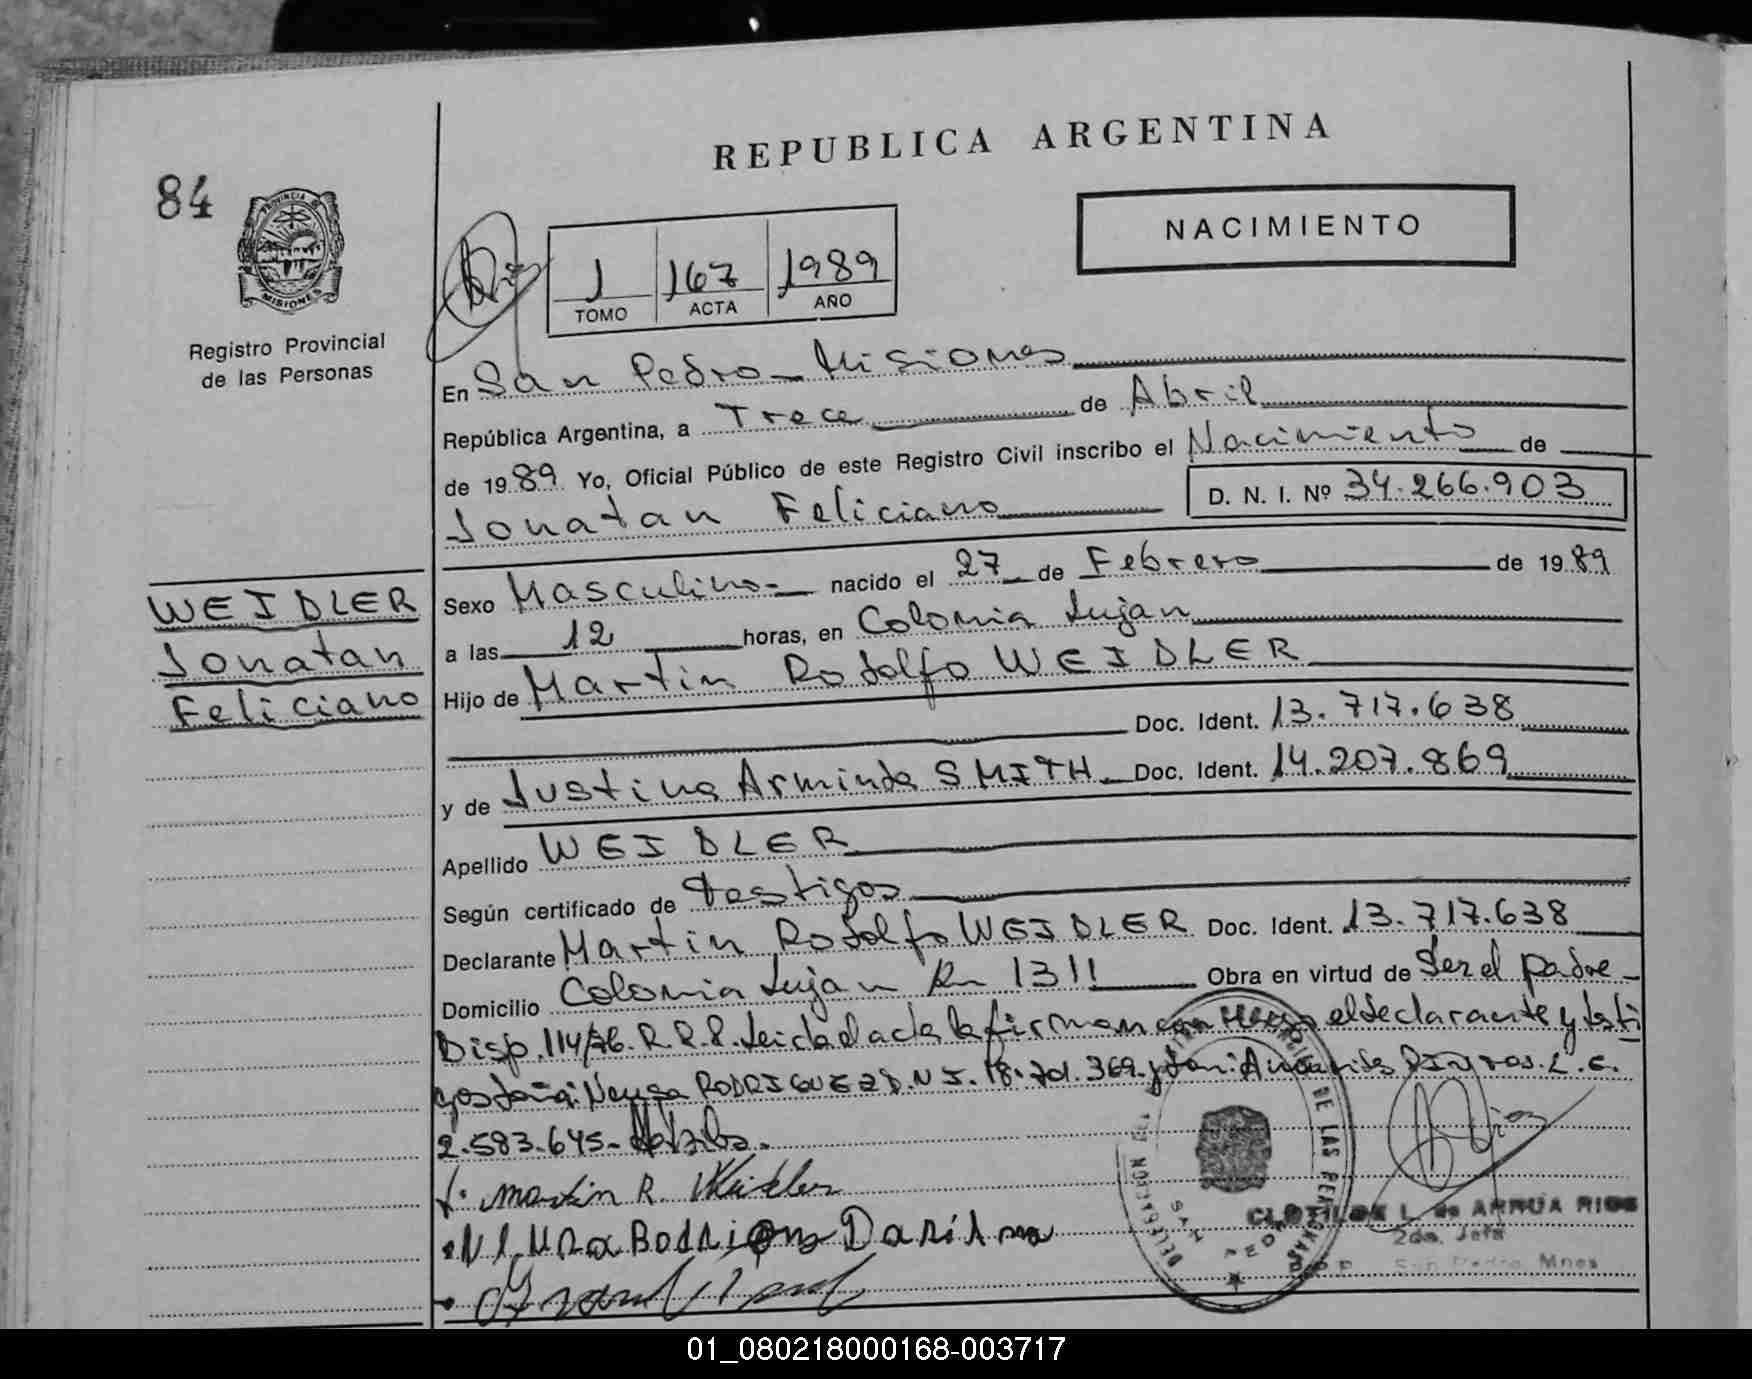 REPUBLICA ARGENTINA
84
PROVINCIA DE
MISIONES
NACIMIENTO
1 167 1989
TOMO ACTA AÑO
Registro Provincial
de las Personas
En San Pedro - Misiones
República Argentina, a Trece de Abril
de 1989 Yo, Oficial Público de este Registro Civil inscribo el Nacimiento de
Jonatan Feliciano D. N. I. Nº 34.266.903
WEIDLER
Jonatan
Feliciano
Sexo Masculino- nacido el 27 de Febrero de 1989
a las 12 horas, en Colonia Lujan
Hijo de Martin Rodolfo WEIDLER
Doc. Ident. 13.717.638
y de Justina Arminda SMITH Doc. Ident. 14.207.869
Apellido WEIDLER
Según certificado de testigos
Declarante Martin Rodolfo WEIDLER Doc. Ident. 13.717.638
Domicilio Colonia Lujan Km 1311 Obra en virtud de Ser el padre -
Disp. 114/76. R.R.P. Leida el acta la firman con el declarante y testi
gos RODRIGUEZ D.N.I. 18. 369. L.E.
2.583.645-
Martin R. Weidler
DELEGACION DE LAS PERSONAS
SAN PEDRO
CLOTILDE L. de ARRUA RIOS
2da. Jefa
San Pedro Mnes
01_080218000168-003717